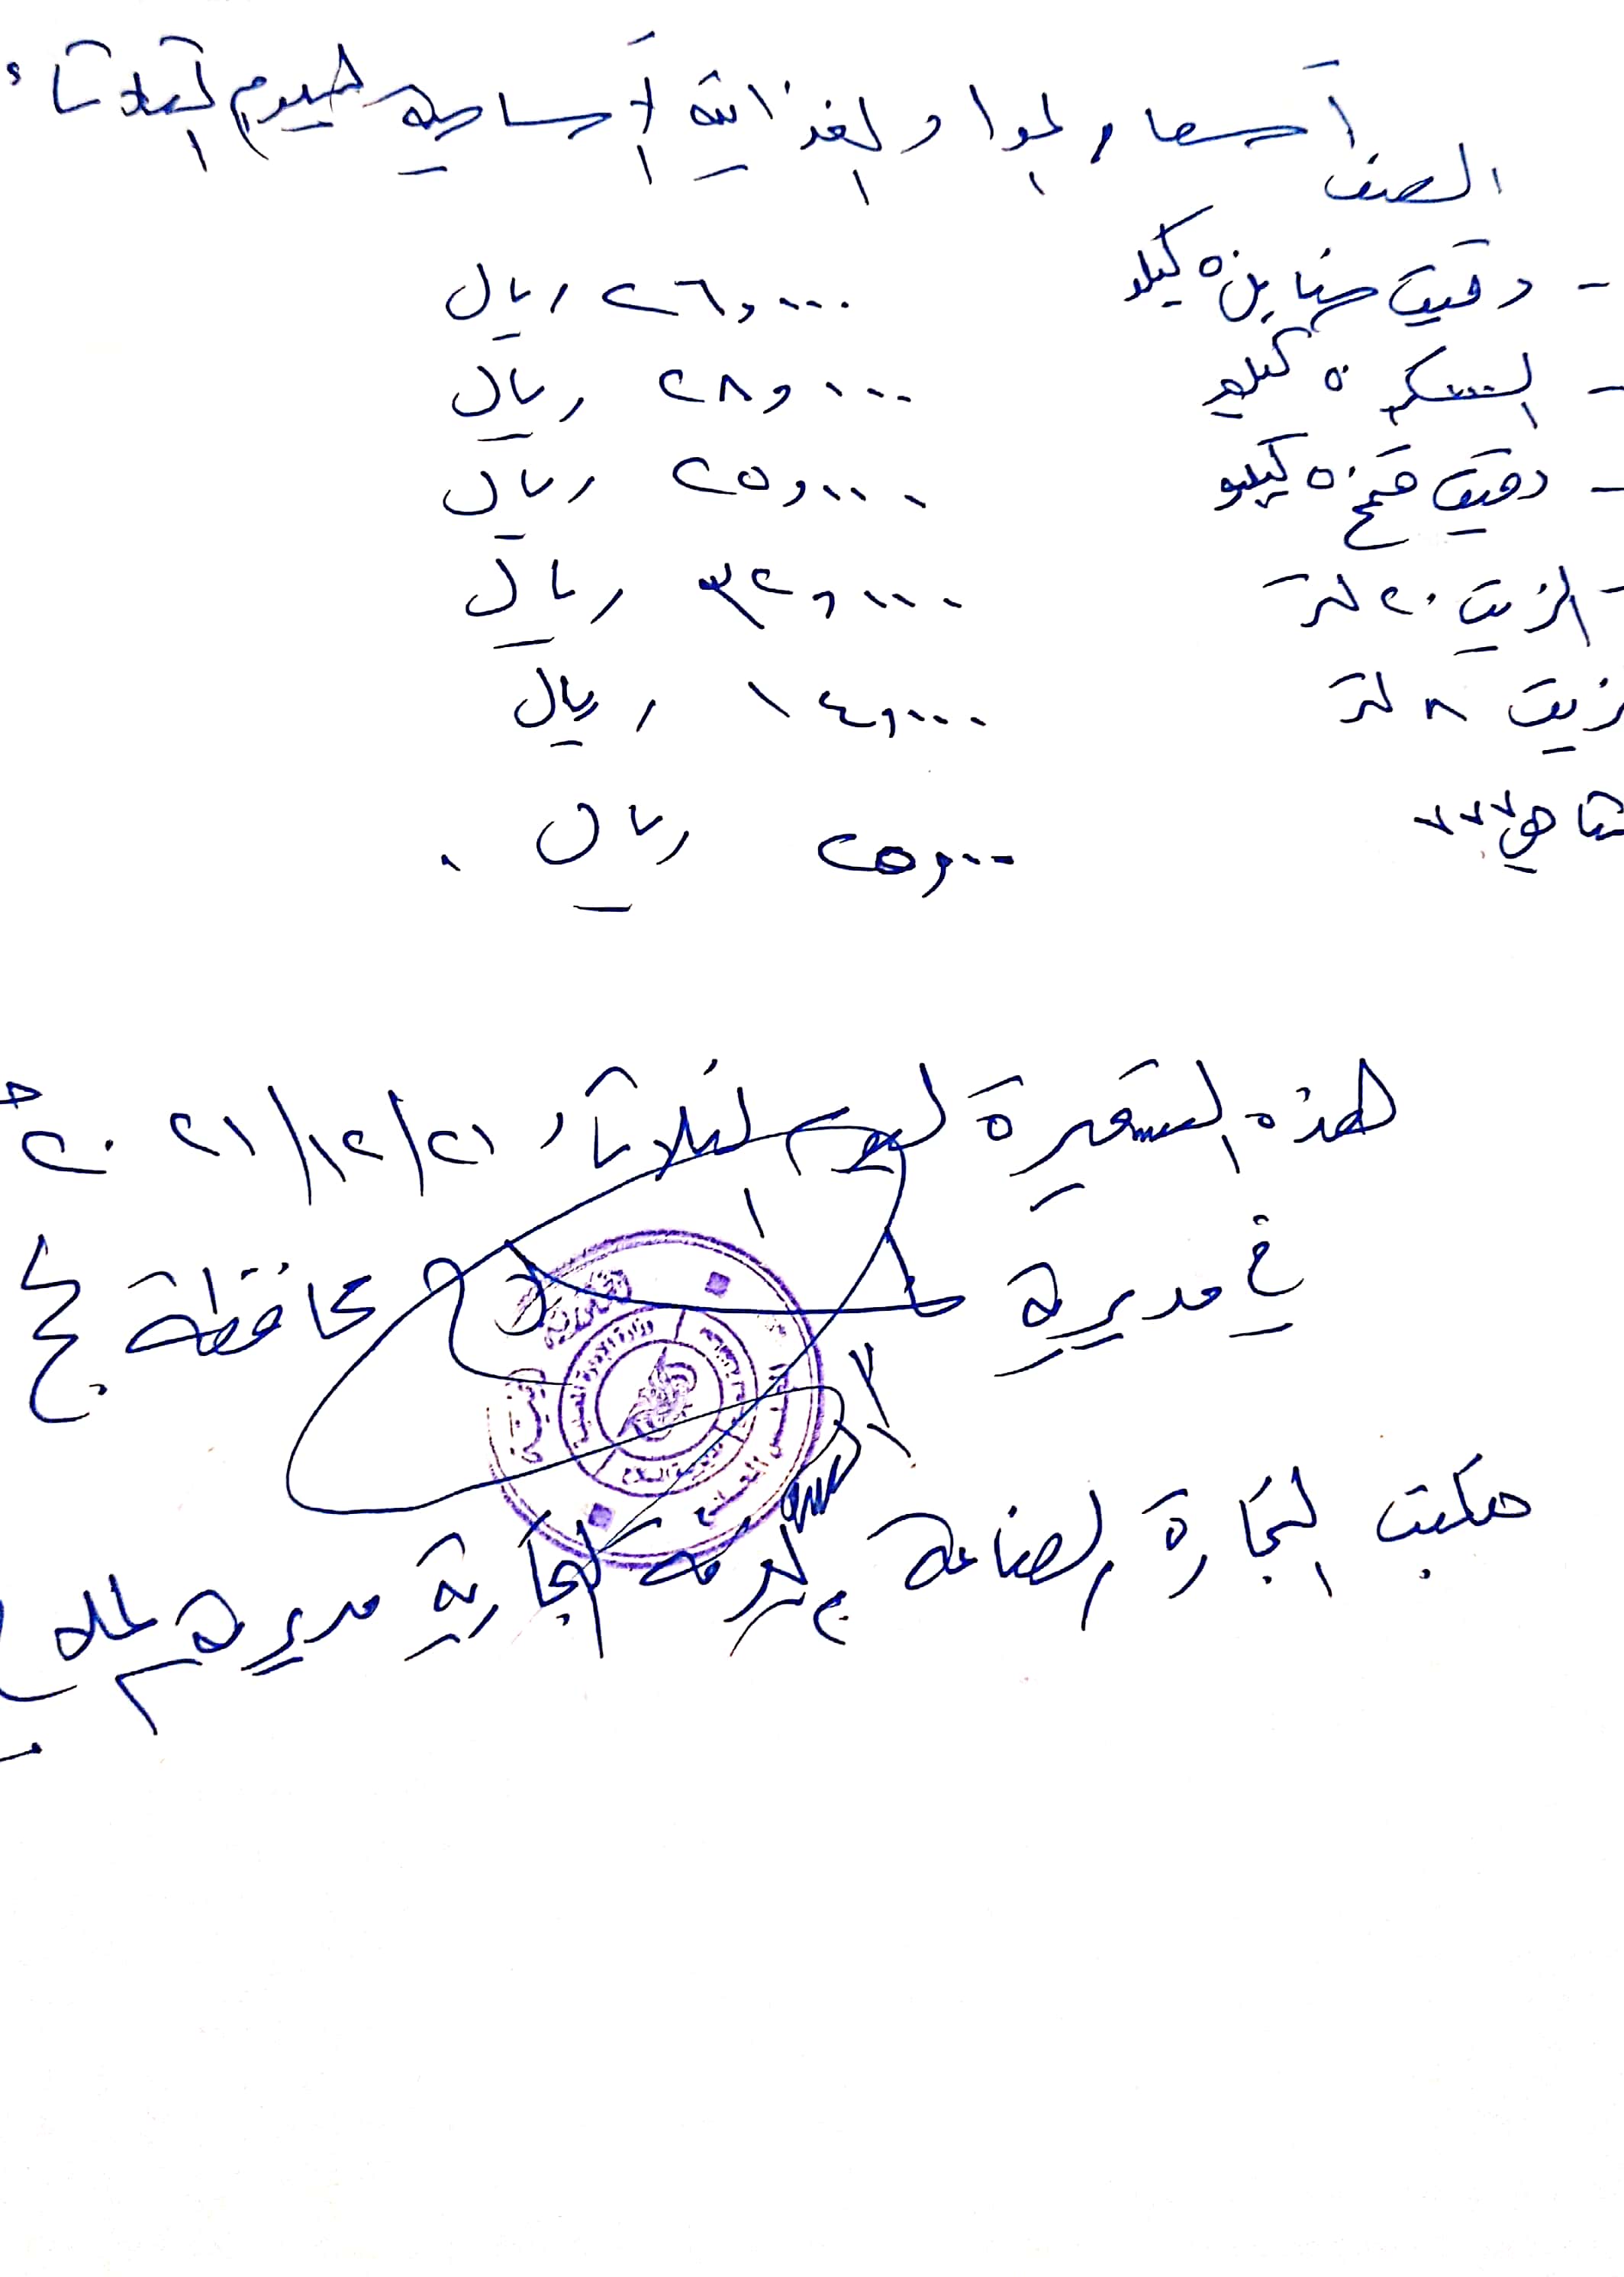 أسعار المواد الغذائية الأساسية لليوم الثلاثاء
الصنف
- دقيق سنابل ٥٠ كيلو ٢٦,٠٠٠ ريال
- السكر ٥٠ كيلو ٢٨,٠٠٠ ريال
- دقيق قمح ٥٠ كيلو ٢٥,٠٠٠ ريال
- الزيت ٢٠ لتر ٣٢,٠٠٠ ريال
زيت ٨ لتر ١٤,٠٠٠ ريال
شاهي ٧٧٧ ٢٥,٠٠ ريال .
هذه التسعيرة اليوم الثلاثاء ٢١/١٢/٢٠٢١م
في مديرية محافظة
مكتب التجارة والصناعة والغرفة التجارية مديرية